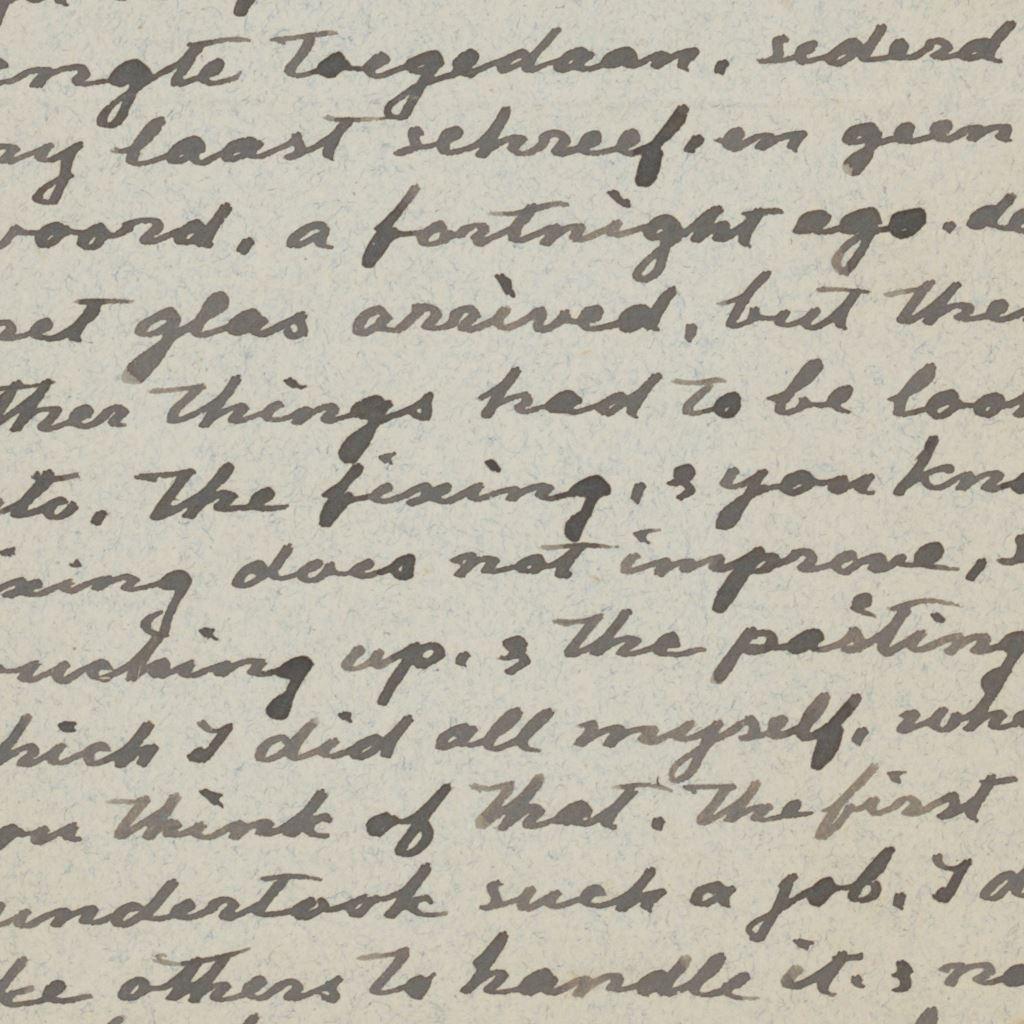 engte toegedaan. sederd
ny laast schreef. en geen
woord. a fortnight ago. de
het glas arrived, but the
ther things had to be loo
to. The fixing, & you kno
ixing does not improve, &
ouching up. & the pasting
hich I did all myself. whe
ou think of that. The first
undertook such a job. I d
ke others to handle it. & no